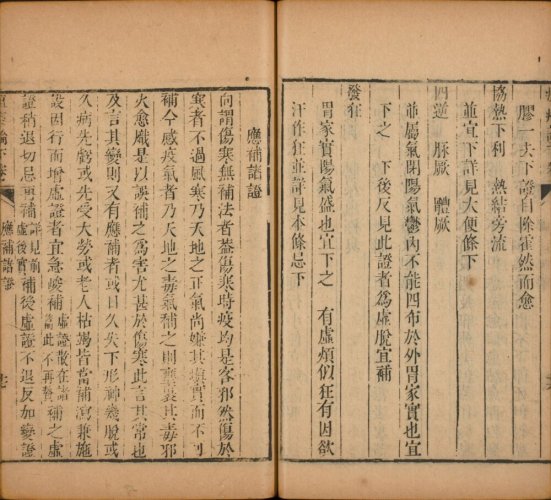 膠一次下證自除霍然而愈
協熱下利　熱結旁流
並宜下詳見大便條下
四逆　脈厥　體厥
並屬氣閉陽氣鬱內不能四布於外胃家實也宜
下之　下後反見此證者為虛脫宜補
發狂
胃家實陽氣盛也宜下之　有虛煩似狂有因欲
汗作狂並詳見本條忌下
應補諸證
向謂傷寒無補法者蓋傷寒時疫均是客邪然傷於
寒者不過風寒乃天地之正氣尚嫌其填實而不可
補今感疫氣者乃天地之毒氣補之則壅裹其毒邪
火愈熾是以誤補之為害尤甚於傷寒此言其常也
及言其變則又有應補者或日久失下形神幾脫或
久病先虧或先受大勞或老人枯竭皆當補瀉兼施
設因行而增虛證者宜急峻補虛證散在諸篇此不再贅補之虛
證稍退切忌再補詳見前虛後實補後虛證不退反加變證
應補諸證